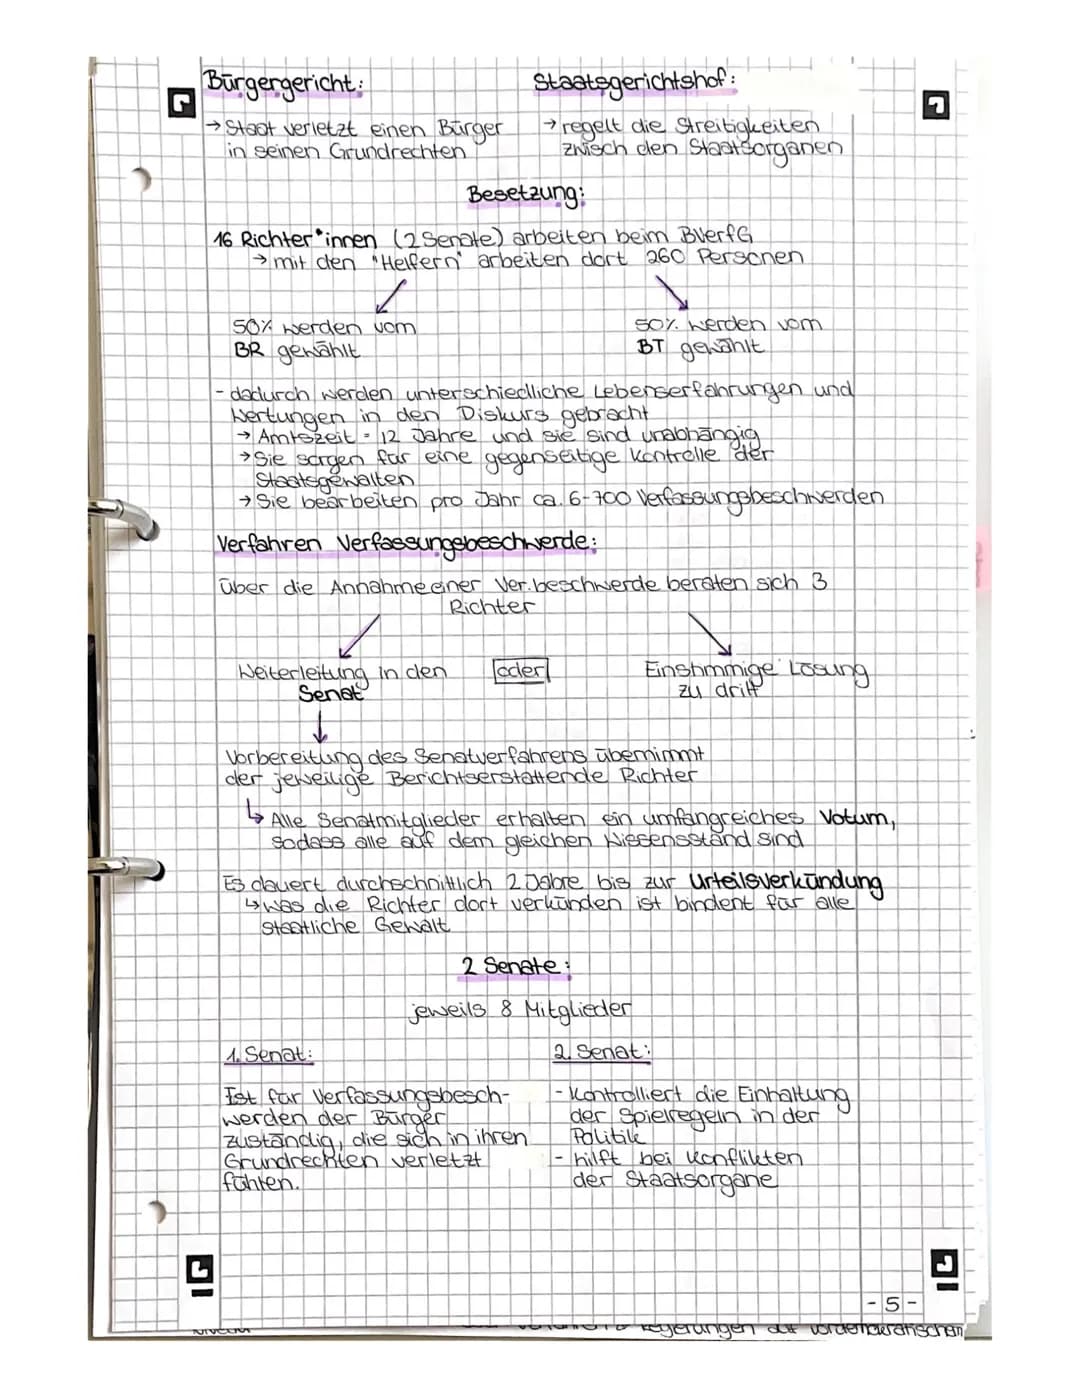 Bürgergericht:
Staatsgerichtshof:
→ Staat verletzt einen Bürger
in seinen Grundrechten
→ regelt die Streitigkeiten
znisch den Staatsorganen
Besetzung:
16 Richter*innen (2 Senate) arbeiten beim BVerfG
→ mit den "Helfern" arbeiten dort 260 Personen
50% werden vom
BR gewählt
50% werden vom
BT gewählt
- dadurch werden unterschiedliche Lebenserfahrungen und
Wertungen in den Diskurs gebracht
→ Amtszeit = 12 Jahre und sie sind unabhängig
→ Sie sorgen für eine gegenseitige Kontrolle der
Staatsgewalten
→ Sie bearbeiten pro Jahr ca. 6-700 Verfassungsbeschwerden
Verfahren Verfassungsbeschwerde:
über die Annahme einer Ver.beschwerde beraten sich 3
Richter
Weiterleitung in den
Senat
oder
Einstimmige Lösung
zu dritt
Vorbereitung des Senatverfahrens übernimmt
der jeweilige Berichtserstattende Richter
↳ Alle Senatmitglieder erhalten ein umfangreiches Votum,
sodass alle auf dem gleichen Wissensstand sind
Es dauert durchschnittlich 2 Jahre bis zur Urteilsverkündung
↳ was die Richter dort verkünden ist bindent für alle
staatliche Gewalt
2 Senate:
jeweils 8 Mitglieder
1. Senat:
2. Senat:
Ist für Verfassungsbesch-
werden der Bürger
zuständig, die sich in ihren
Grundrechten verletzt
fühlen.
- Kontrolliert die Einhaltung
der Spielregeln in der
Politik
- hilft bei Konflikten
der Staatsorgane
- 5 -